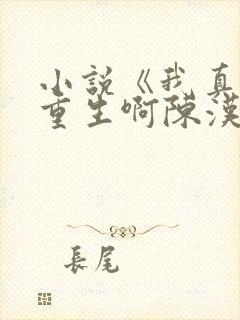 小說《我真
重生啊陳漢
長尾